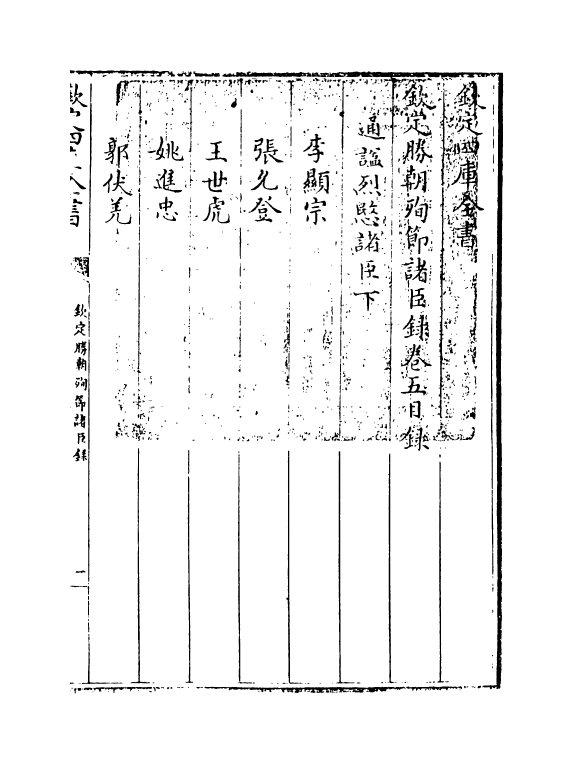 欽定四庫全書
欽定勝朝殉節諸臣錄卷五目錄
通謚烈愍諸臣下
李顯宗
張久登
王世虎
姚進忠
郭伏羌
欽定四庫全書
欽定勝朝殉節諸臣錄
一